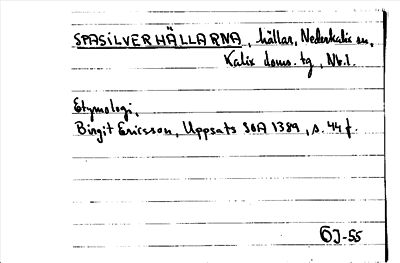 SPASILVERHÄLLARNA, hällar, Nederkalix sn,
Kalix doms. tg, Nb.l.
Etymologi,
Birgit Ericsson, Uppsats SOA 1389, s. 44 f.
ÖJ-55